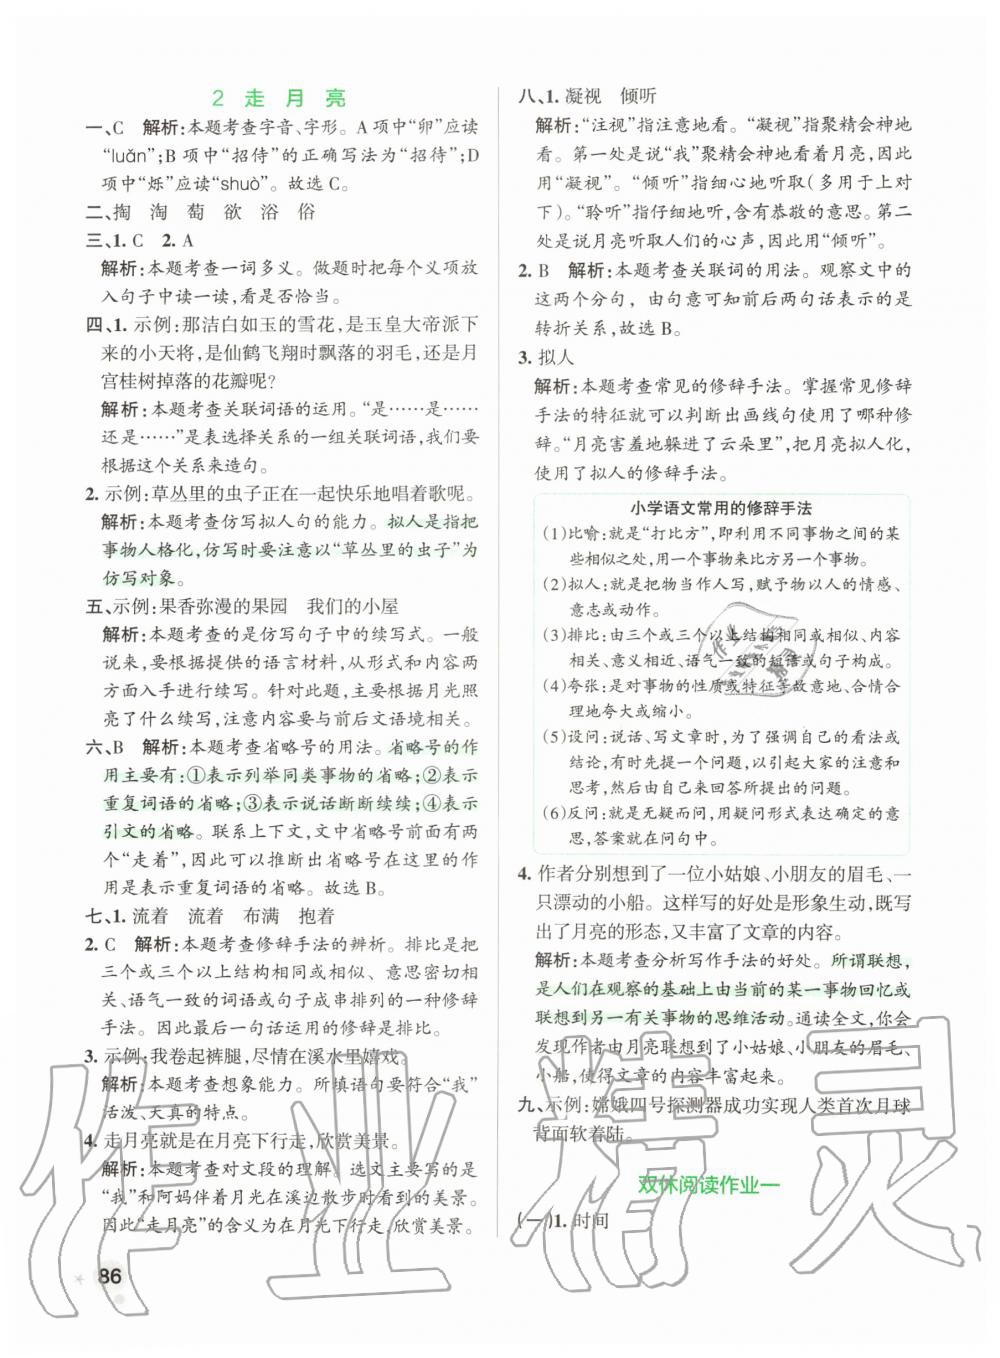 2 走月亮
一、C 解析:本题考查字音、字形。A 项中“卵”应读
“luǎn”;B 项中“招待”的正确写法为“招待”;D
项中“烁”应读“shuò”。故选 C。
二、掏 淘 萄 欲 浴 俗
三、1. C 2. A
解析:本题考查一词多义。做题时把每个义项放
入句子中读一读,看是否恰当。
四、1. 示例:那洁白如玉的雪花,是玉皇大帝派下
来的小天将,是仙鹤飞翔时飘落的羽毛,还是月
宫桂树掉落的花瓣呢?
解析:本题考查关联词语的运用。“是……是……
还是……”是表选择关系的一组关联词语,我们要
根据这个关系来造句。
2. 示例:草丛里的虫子正在一起快乐地唱着歌呢。
解析:本题考查仿写拟人句的能力。拟人是指把
事物人格化,仿写时要注意以“草丛里的虫子”为
仿写对象。
五、示例:果香弥漫的果园 我们的小屋
解析:本题考查的是仿写句子中的续写式。一般
说来,要根据提供的语言材料,从形式和内容两
方面入手进行续写。针对此题,主要根据月光照
亮了什么续写,注意内容要与前后文语境相关。
六、B 解析:本题考查省略号的用法。省略号的作
用主要有:①表示列举同类事物的省略;②表示
重复词语的省略;③表示说话断断续续;④表示
引文的省略。联系上下文,文中省略号前面有两
个“走着”,因此可以推断出省略号在这里的作
用是表示重复词语的省略。故选 B。
七、1. 流着 流着 布满 抱着
2. C 解析:本题考查修辞手法的辨析。排比是把
三个或三个以上结构相同或相似、意思密切相
关、语气一致的词语或句子成串排列的一种修辞
手法。因此最后一句话运用的修辞是排比。
3. 示例:我卷起裤腿,尽情在溪水里嬉戏。
解析:本题考查想象能力。所填语句要符合“我”
活泼、天真的特点。
4. 走月亮就是在月亮下行走,欣赏美景。
解析:本题考查对文段的理解。选文主要写的是
“我”和阿妈伴着月光在溪边散步时看到的美景。
因此“走月亮”的含义为在月光下行走,欣赏美景。
86
八、1. 凝视 倾听
解析:“注视”指注意地看。“凝视”指聚精会神地
看。第一处是说“我”聚精会神地看着月亮,因此
用“凝视”。“倾听”指细心地听取(多用于上对
下)。“聆听”指仔细地听,含有恭敬的意思。第二
处是说月亮听取人们的心声,因此用“倾听”。
2. B 解析:本题考查关联词的用法。观察文中的
这两个分句,由句意可知前后两句话表示的是
转折关系,故选 B。
3. 拟人
解析:本题考查常见的修辞手法。掌握常见修辞
手法的特征就可以判断出画线句使用了哪种修
辞。“月亮害羞地躲进了云朵里”,把月亮拟人化,
使用了拟人的修辞手法。
小学语文常用的修辞手法
(1)比喻:就是“打比方”,即利用不同事物之间的某
些相似之处,用一个事物来比方另一个事物。
(2)拟人:就是把物当作人写,赋予物以人的情感、
意志或动作。
(3)排比:由三个或三个以上结构相同或相似、内容
相关、意义相近、语气一致的短语或句子构成。
(4)夸张:是对事物的性质或特征等故意地、合情合
理地夸大或缩小。
(5)设问:说话、写文章时,为了强调自己的看法或
结论,有时先提一个问题,以引起大家的注意和
思考,然后由自己来回答所提出的问题。
(6)反问:就是无疑而问,用疑问形式表达确定的意
思,答案就在问句中。
4. 作者分别想到了一位小姑娘、小朋友的眉毛、一
只漂动的小船。这样写的好处是形象生动,既写
出了月亮的形态,又丰富了文章的内容。
解析:本题考查分析写作手法的好处。所谓联想,
是人们在观察的基础上由当前的某一事物回忆或
联想到另一有关事物的思维活动。通读全文,你会
发现作者由月亮联想到了小姑娘、小朋友的眉毛、
小船,使得文章的内容丰富起来。
九、示例:嫦娥四号探测器成功实现人类首次月球
背面软着陆。
双休阅读作业一
(一)1. 时间
作业精灵
作业精灵